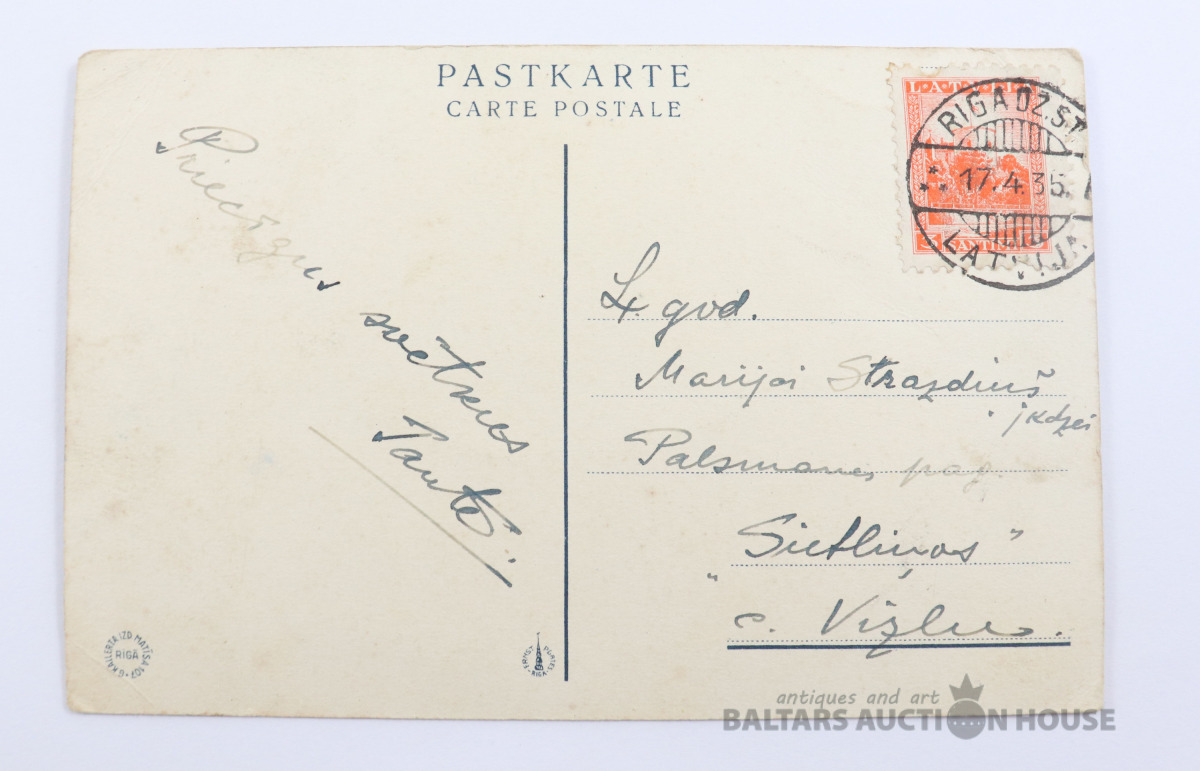 PASTKARTE
CARTE POSTALE
RIGA DZ.ST.
17.4.35.
LATVIJA
SANTIM
Priecīgus
svētkus
Tante.
Lt. god.
Marijai Strazdiņš
jkdzei
Palsmanes pag.
"Sietliņos"
c. Vizlu.
G.KALLERTA IZD. MATĪSA 107
RIGĀ
RIGA
antiques and art
BALTARS AUCTION HOUSE